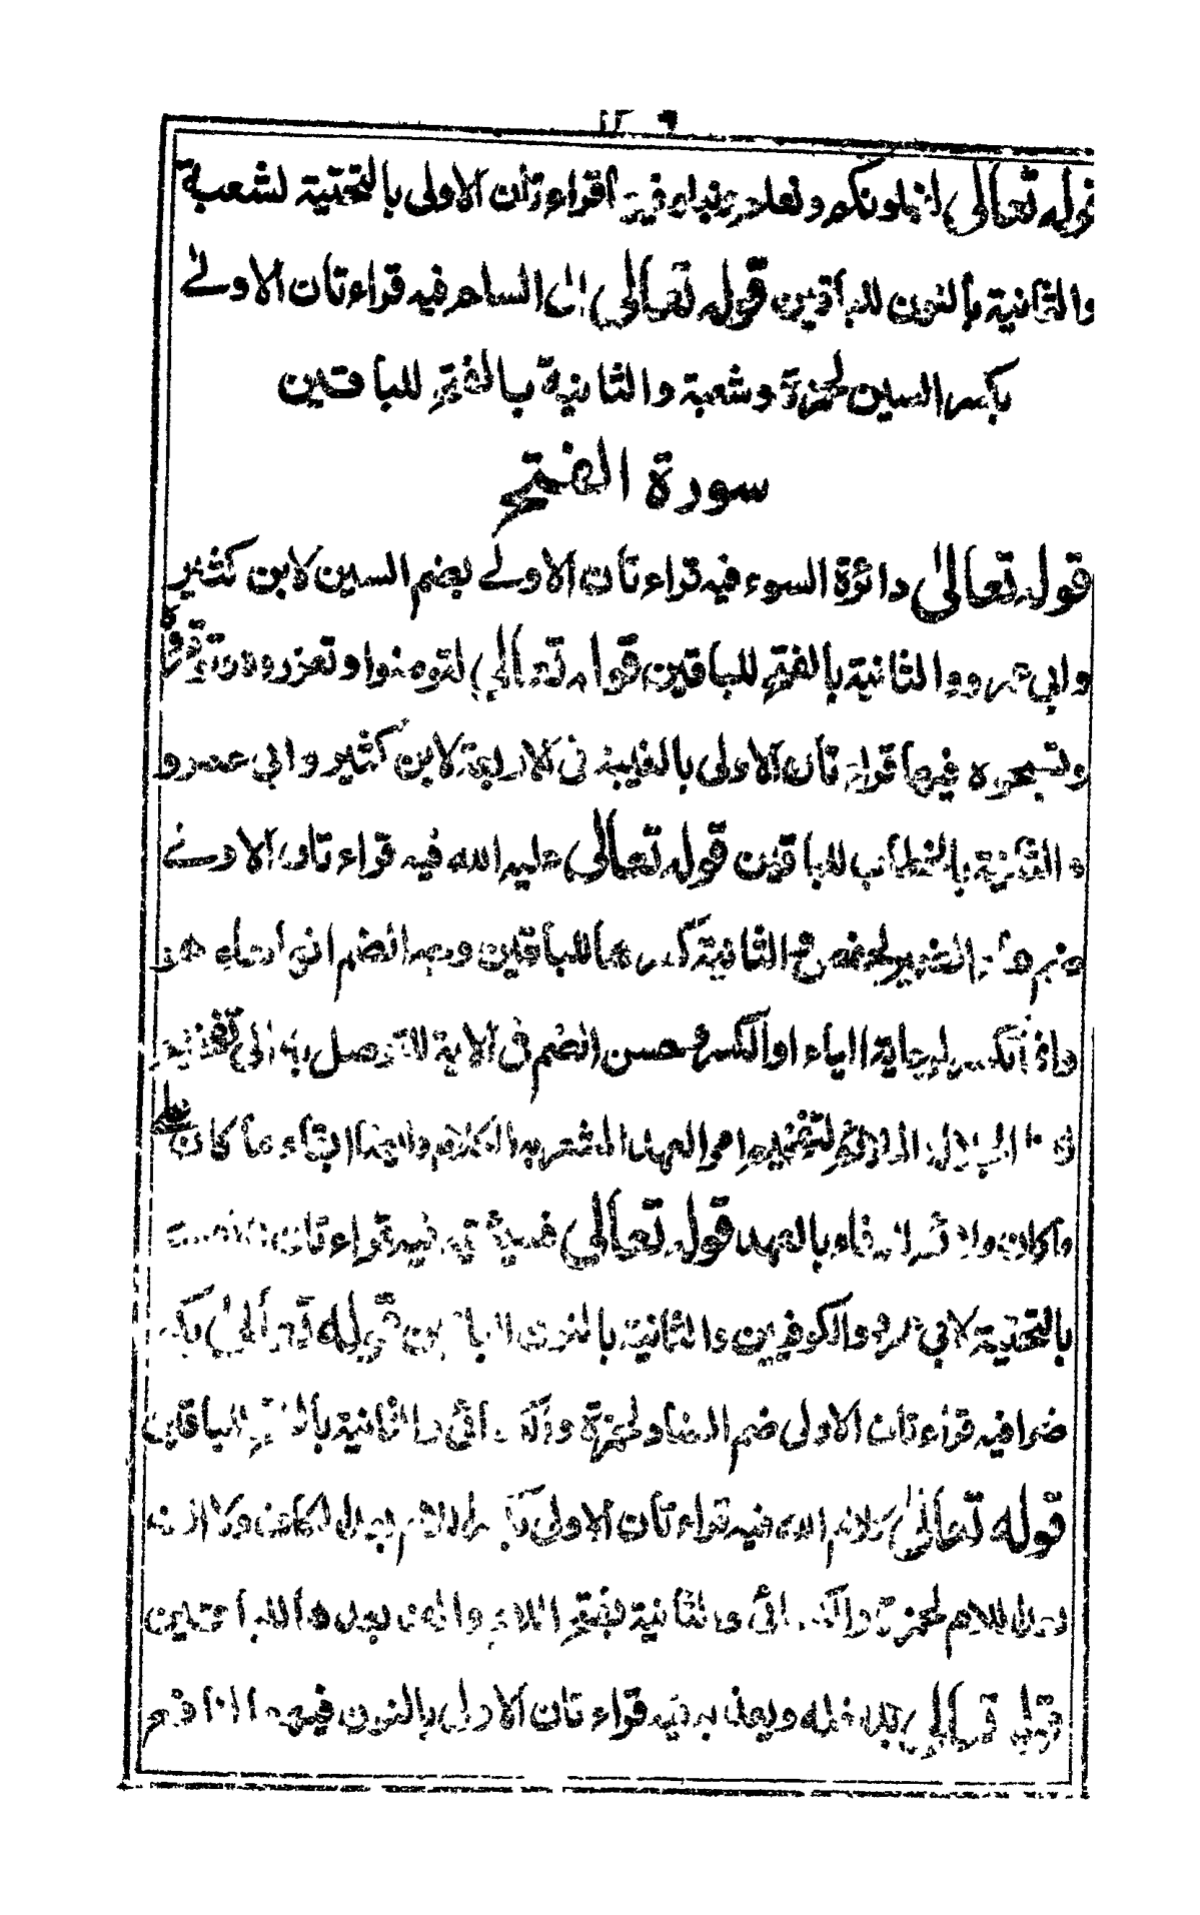 قوله تعالى لنبلونكم ونعلم ونبلو فيها قراءتان الاولى بالتحتية لشعبة
والثانية بالنون للباقين قوله تعالى الى السلم فيه قراءتان الاولى
بكسر السين لحمزة وشعبة والثانية بالفتح للباقين
سورة الفتح
قوله تعالى دائرة السوء فيه قراءتان الاولى بضم السين لابن كثير
وابي عمرو والثانية بالفتح للباقين قوله تعالى لتومنوا وتعزروه وتوقروه
وتسبحوه فيها قراءتان الاولى بالغيبة فى الاربعة لابن كثير وابي عمرو
والثانية بالخطاب للباقين قوله تعالى عليه الله فيه قراءتان الاولى
ضم هاء الضمير لحفص والثانية كسرها للباقين وجه الضم انها هاء هو
الياء او الكسرة وحسن الضم فى الاية للتوصل به الى تفخيم
لتفخيم امر العهد المشعر به الكلام وايضا ابقاء ما كان على
ما كان بالعهد قوله تعالى فسيؤتيه فيه قراءتان الاولى
بالتحتية لابي عمرو والكوفيين والثانية بالنون للباقين قوله تعالى بكم
ضرا فيه قراءتان الاولى ضم الضاد لحمزة والكسائى والثانية بالفتح للباقين
قوله تعالى كلام الله فيه قراءتان الاولى بكسر اللام بعد الكاف ولا الف
بعد اللام لحمزة والكسائى والثانية بفتح اللام والف بعدها للباقين
قوله تعالى يدخله ويعذبه فيه قراءتان الاولى بالنون فيهما لنافع